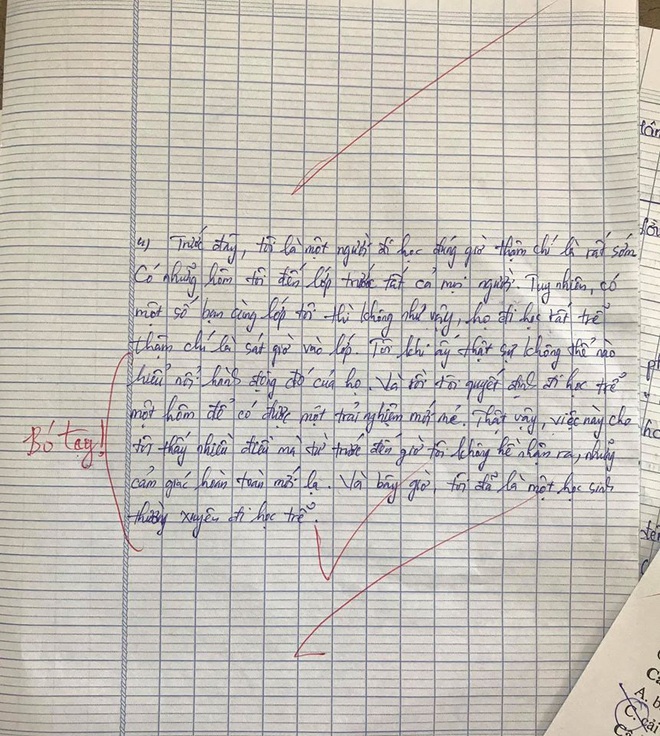 4) Trước đây, tôi là một người đi học đúng giờ thậm chí là rất sớm
Có những hôm tôi đến lớp trước tất cả mọi người. Tuy nhiên, có
một số bạn cùng lớp tôi thì không như vậy, họ đi học rất trễ
thậm chí là sát giờ vào lớp. Tôi khi ấy thật sự không thể nào
hiểu nổi hành động đó của họ. Và rồi tôi quyết định đi học trễ
một hôm để có được một trải nghiệm mới mẻ. Thật vậy, việc này cho
Bó tay!
tôi thấy nhiều điều mà từ trước đến giờ tôi không hề nhận ra, những
cảm giác hoàn toàn mới lạ. Và bây giờ, tôi đã là một học sinh
thường xuyên đi học trễ.
A. b
C. cải